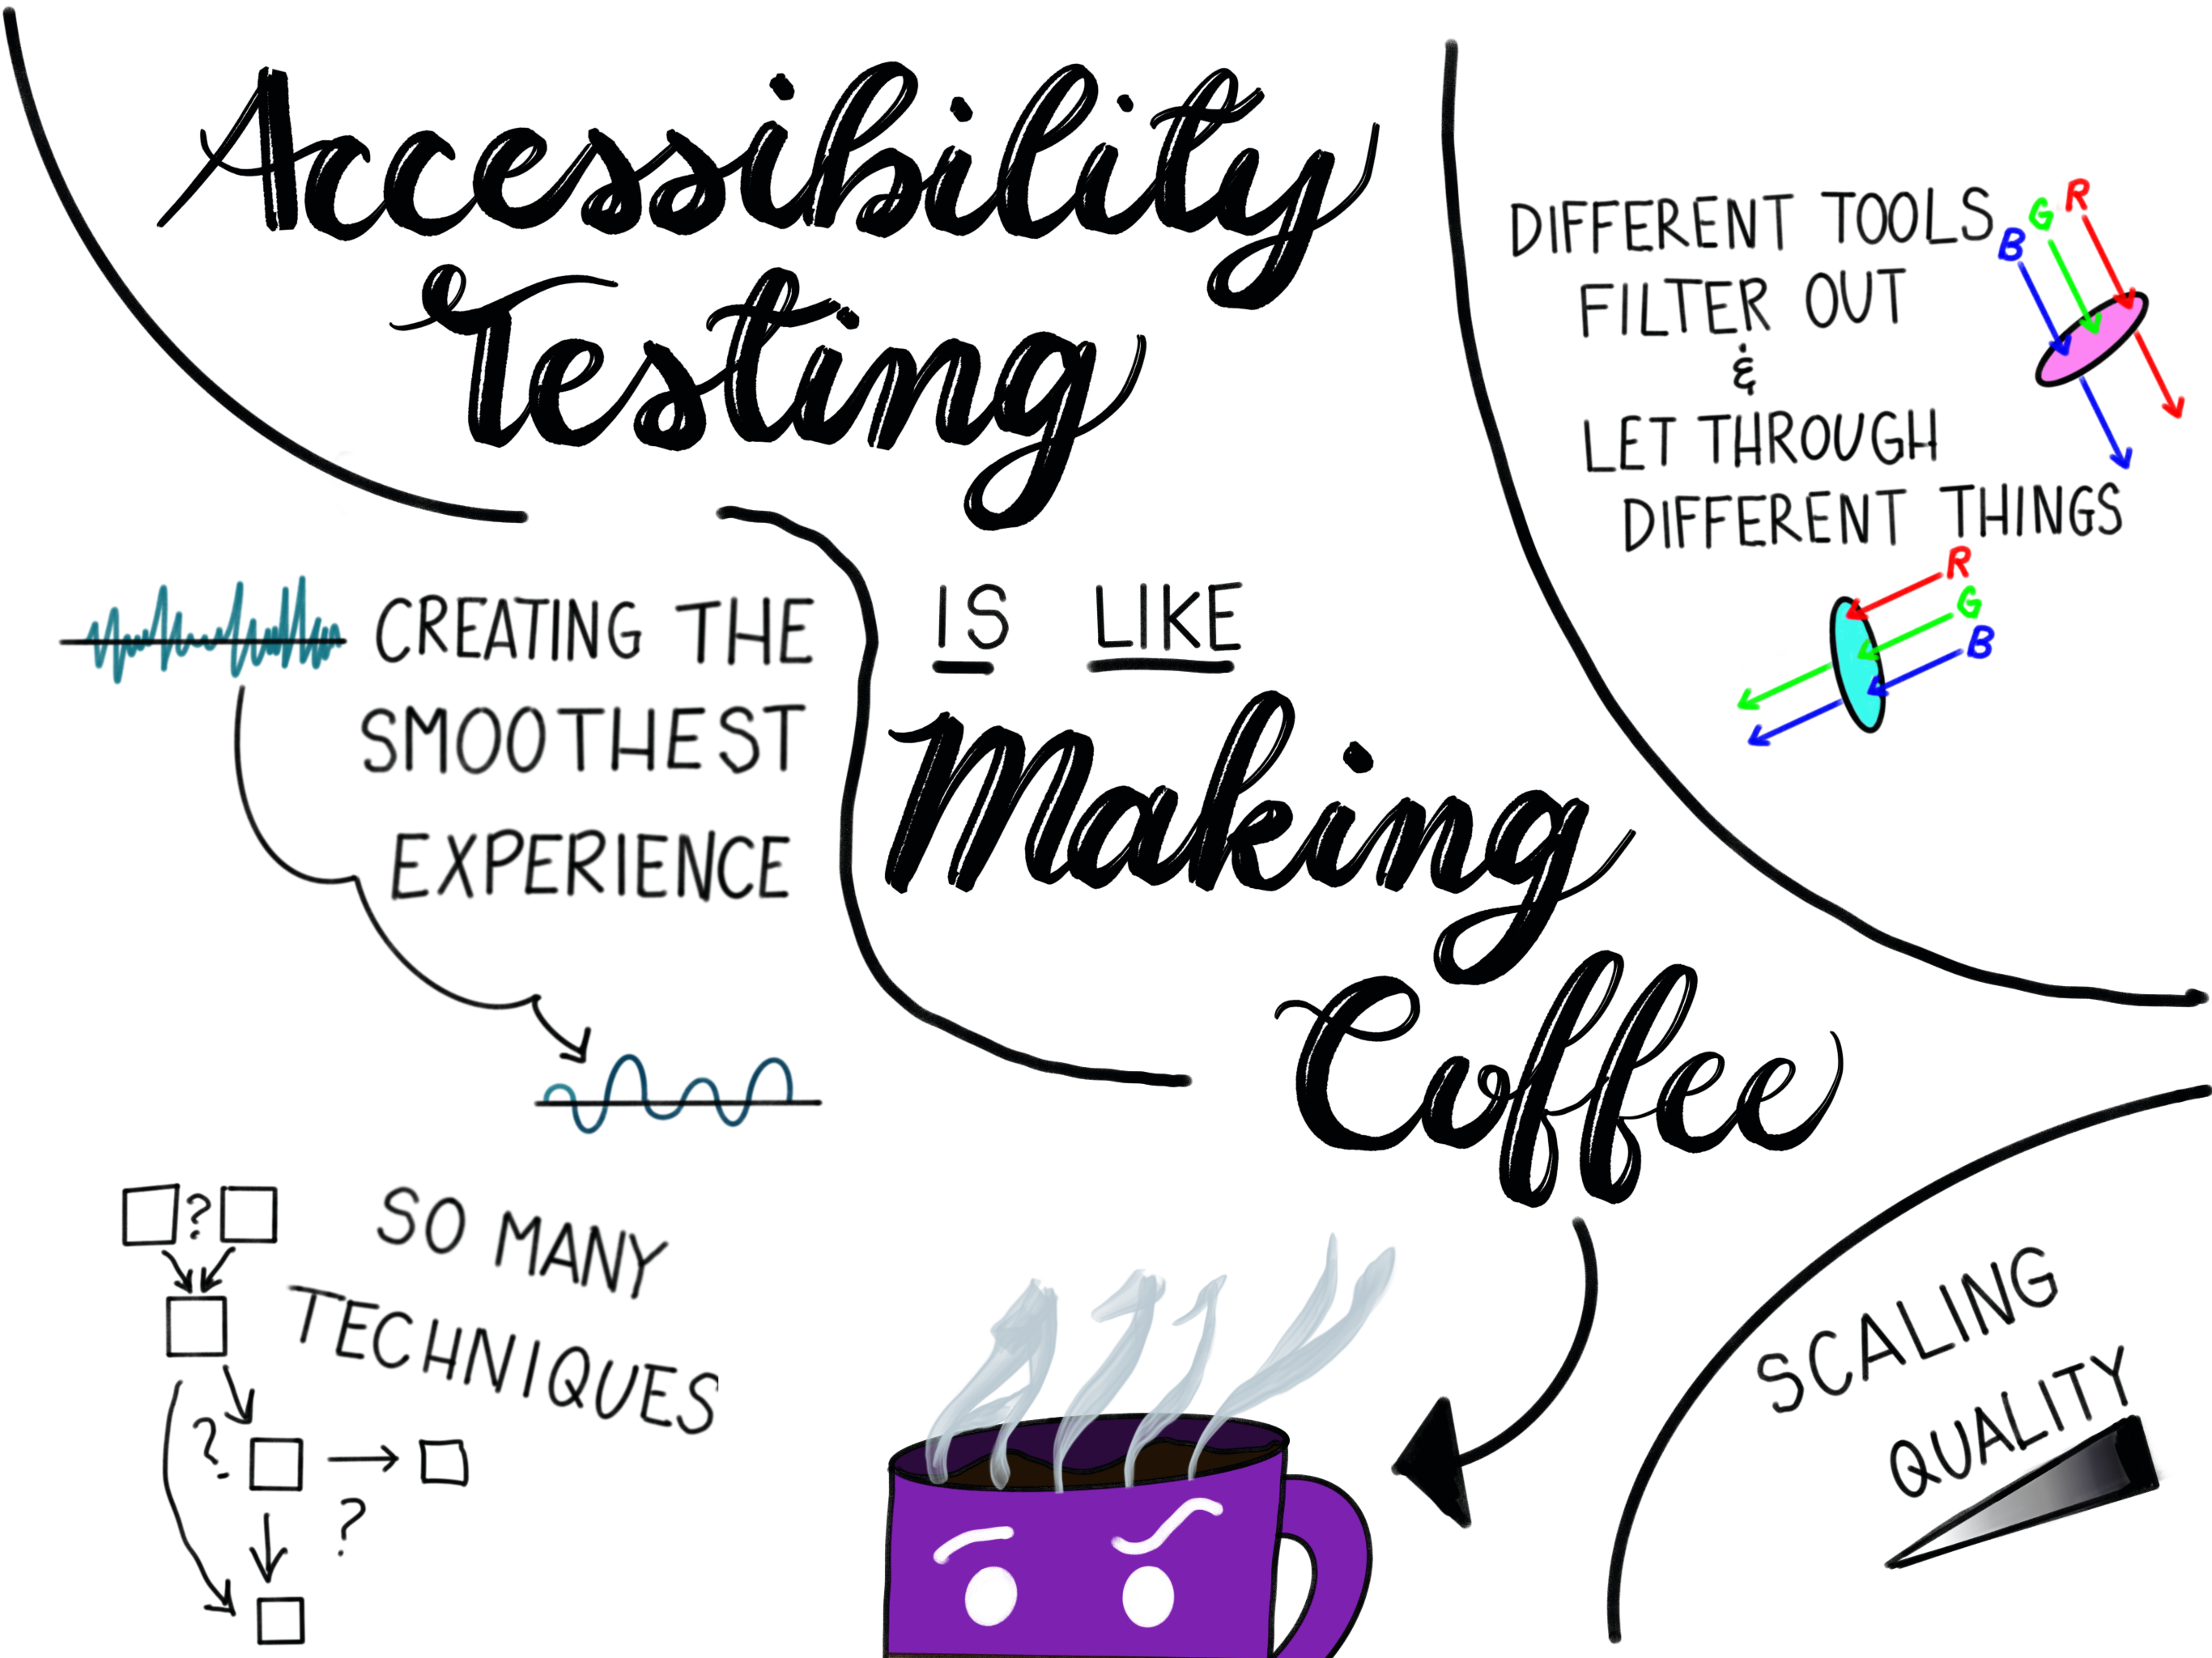 Accessibility
Testing
IS LIKE
Making
Coffee
DIFFERENT TOOLS
FILTER OUT
&
LET THROUGH
DIFFERENT THINGS
B G R
R
G
B
CREATING THE
SMOOTHEST
EXPERIENCE
SO MANY
TECHNIQUES
?
?
?
SCALING
QUALITY